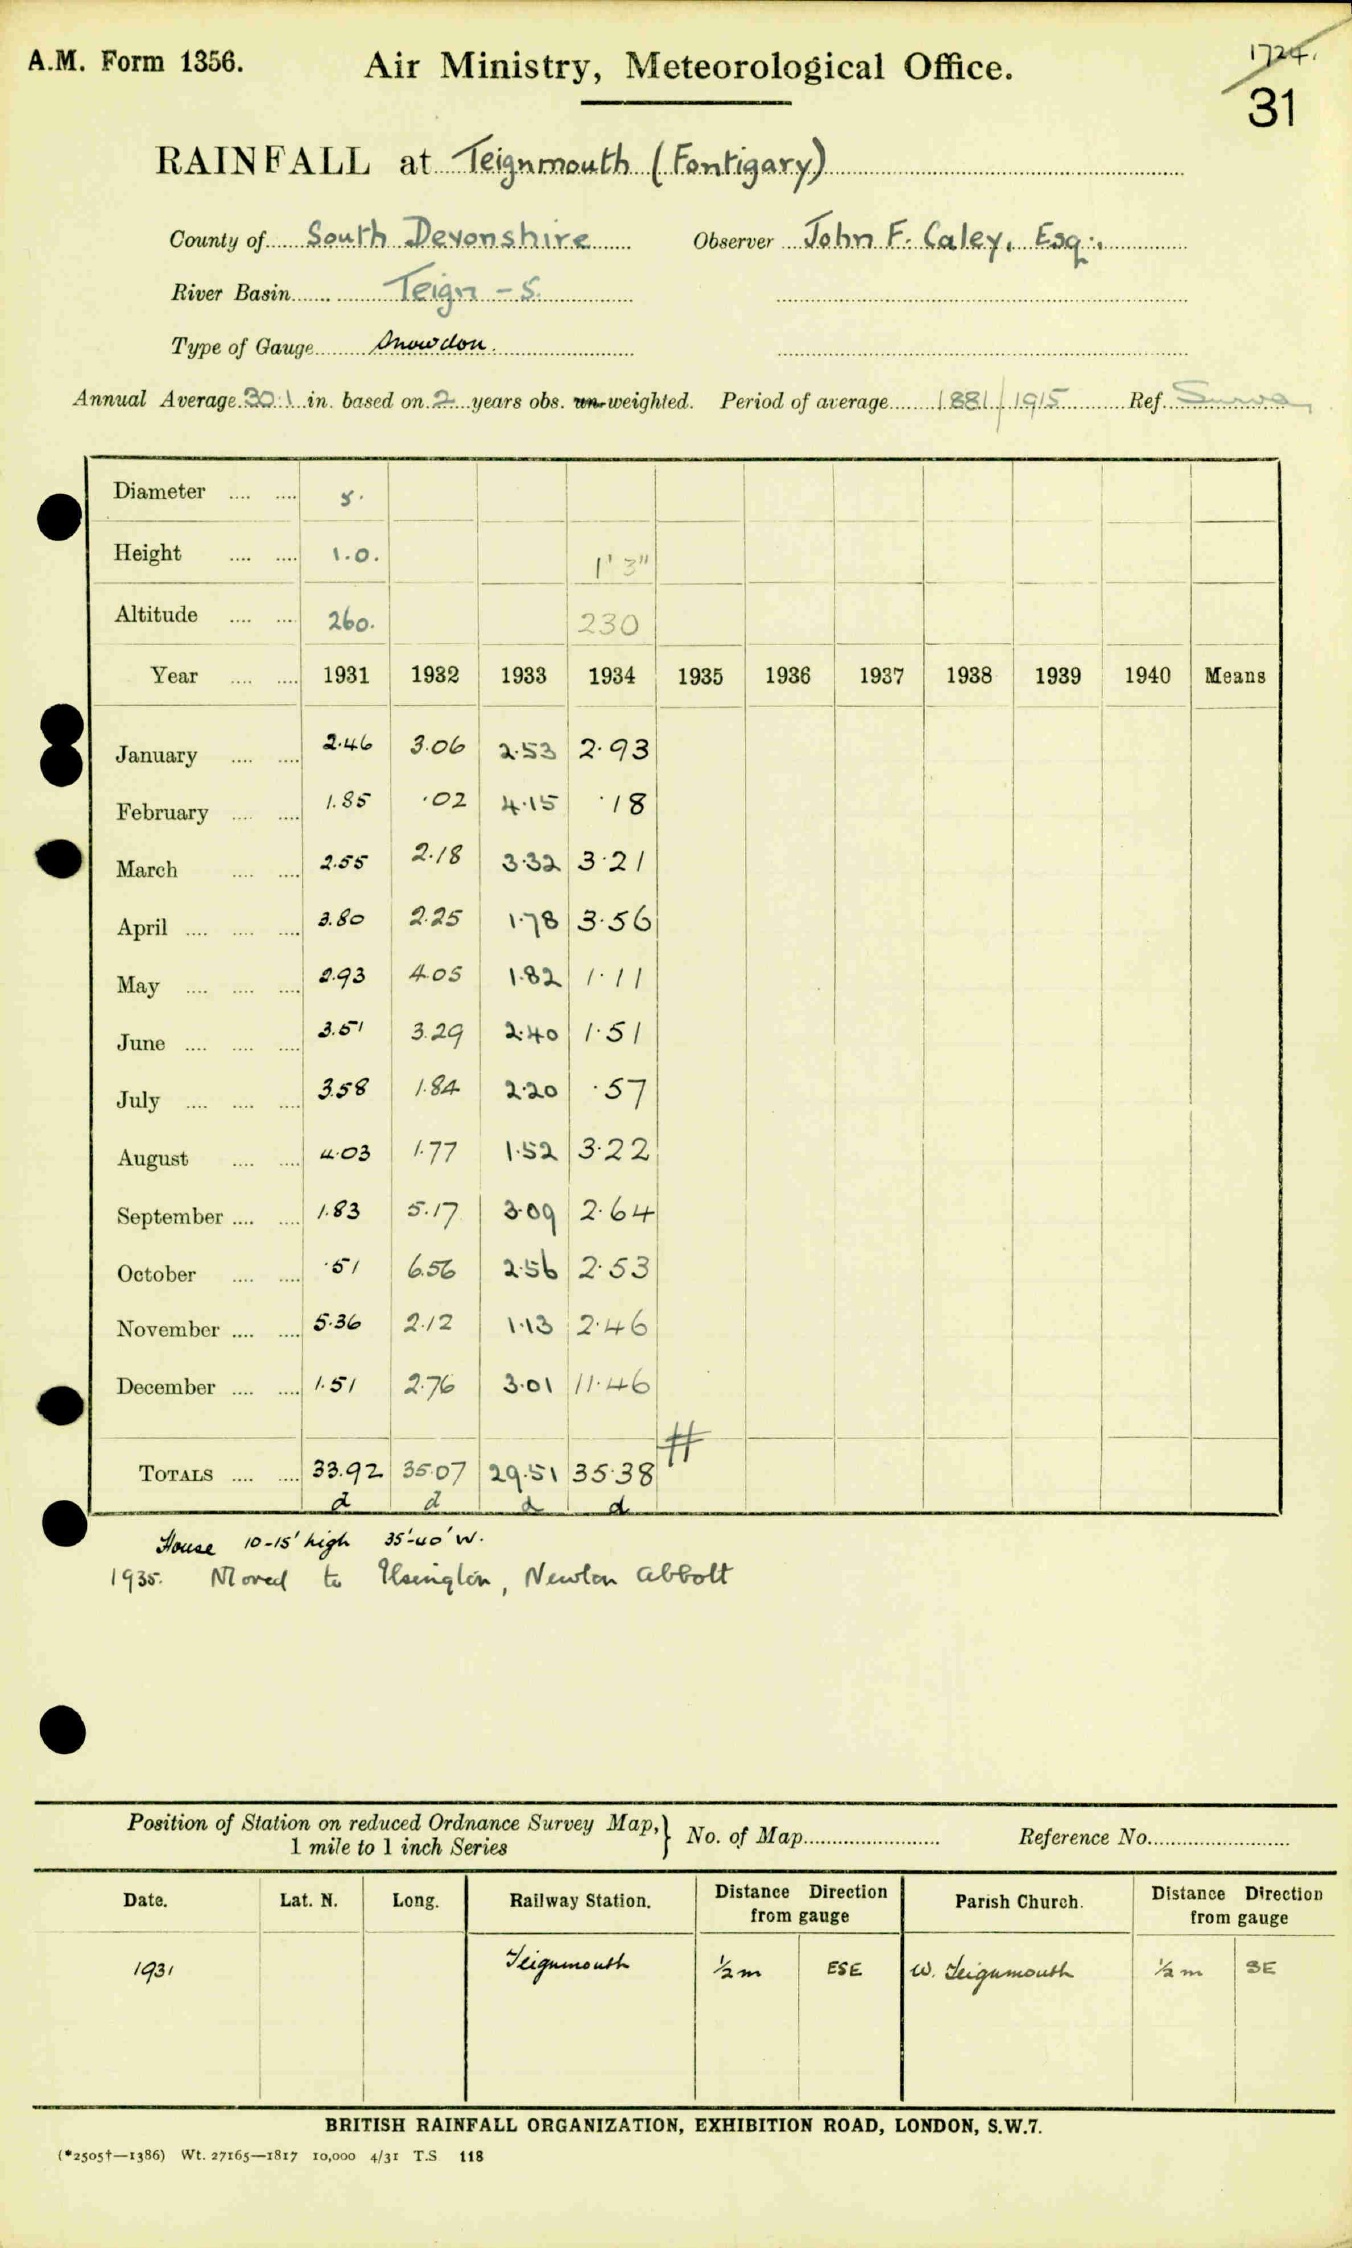 A.M. Form 1356.
Air Ministry, Meteorological Office.
1724.
31
RAINFALL at Teignmouth (Fontigary)
County of South Devonshire Observer John F. Caley, Esq.
River Basin Teign - S.
Type of Gauge Snowdon.
Annual Average 30.1 in. based on 2 years obs. un-weighted. Period of average 1881/1915 Ref.
Diameter 5.
Height 1.0. 1' 3"
Altitude 260. 230
Year 1931 1932 1933 1934 1935 1936 1937 1938 1939 1940 Means
January 2.46 3.06 2.53 2.93
February 1.85 .02 4.15 .18
March 2.55 2.18 3.32 3.21
April 3.80 2.25 1.78 3.56
May 2.93 4.05 1.82 1.11
June 3.51 3.29 2.40 1.51
July 3.58 1.84 2.20 .57
August 4.03 1.77 1.52 3.22
September 1.83 5.17 3.09 2.64
October .51 6.56 2.56 2.53
November 5.36 2.12 1.13 2.46
December 1.51 2.76 3.01 11.46
#
TOTALS 33.92 35.07 29.51 35.38
d d d d
House 10-15' high 35'-40' W.
1935. Moved to Ilsington, Newton Abbott
Position of Station on reduced Ordnance Survey Map, 1 mile to 1 inch Series } No. of Map Reference No.
Date. Lat. N. Long. Railway Station. Distance Direction from gauge Parish Church. Distance Direction from gauge
1931 Teignmouth ½ m ESE W. Teignmouth ½ m SE
BRITISH RAINFALL ORGANIZATION, EXHIBITION ROAD, LONDON, S.W.7.
(*2505†—1386) Wt. 27165—1817 10,000 4/31 T.S 118